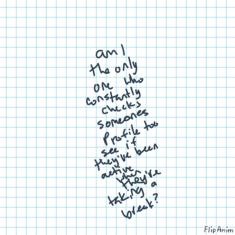 am I
the only
one who
constantly
checks
someones
profile too
see if
they've been
active when
they're
taking a
break?
FlipAnim